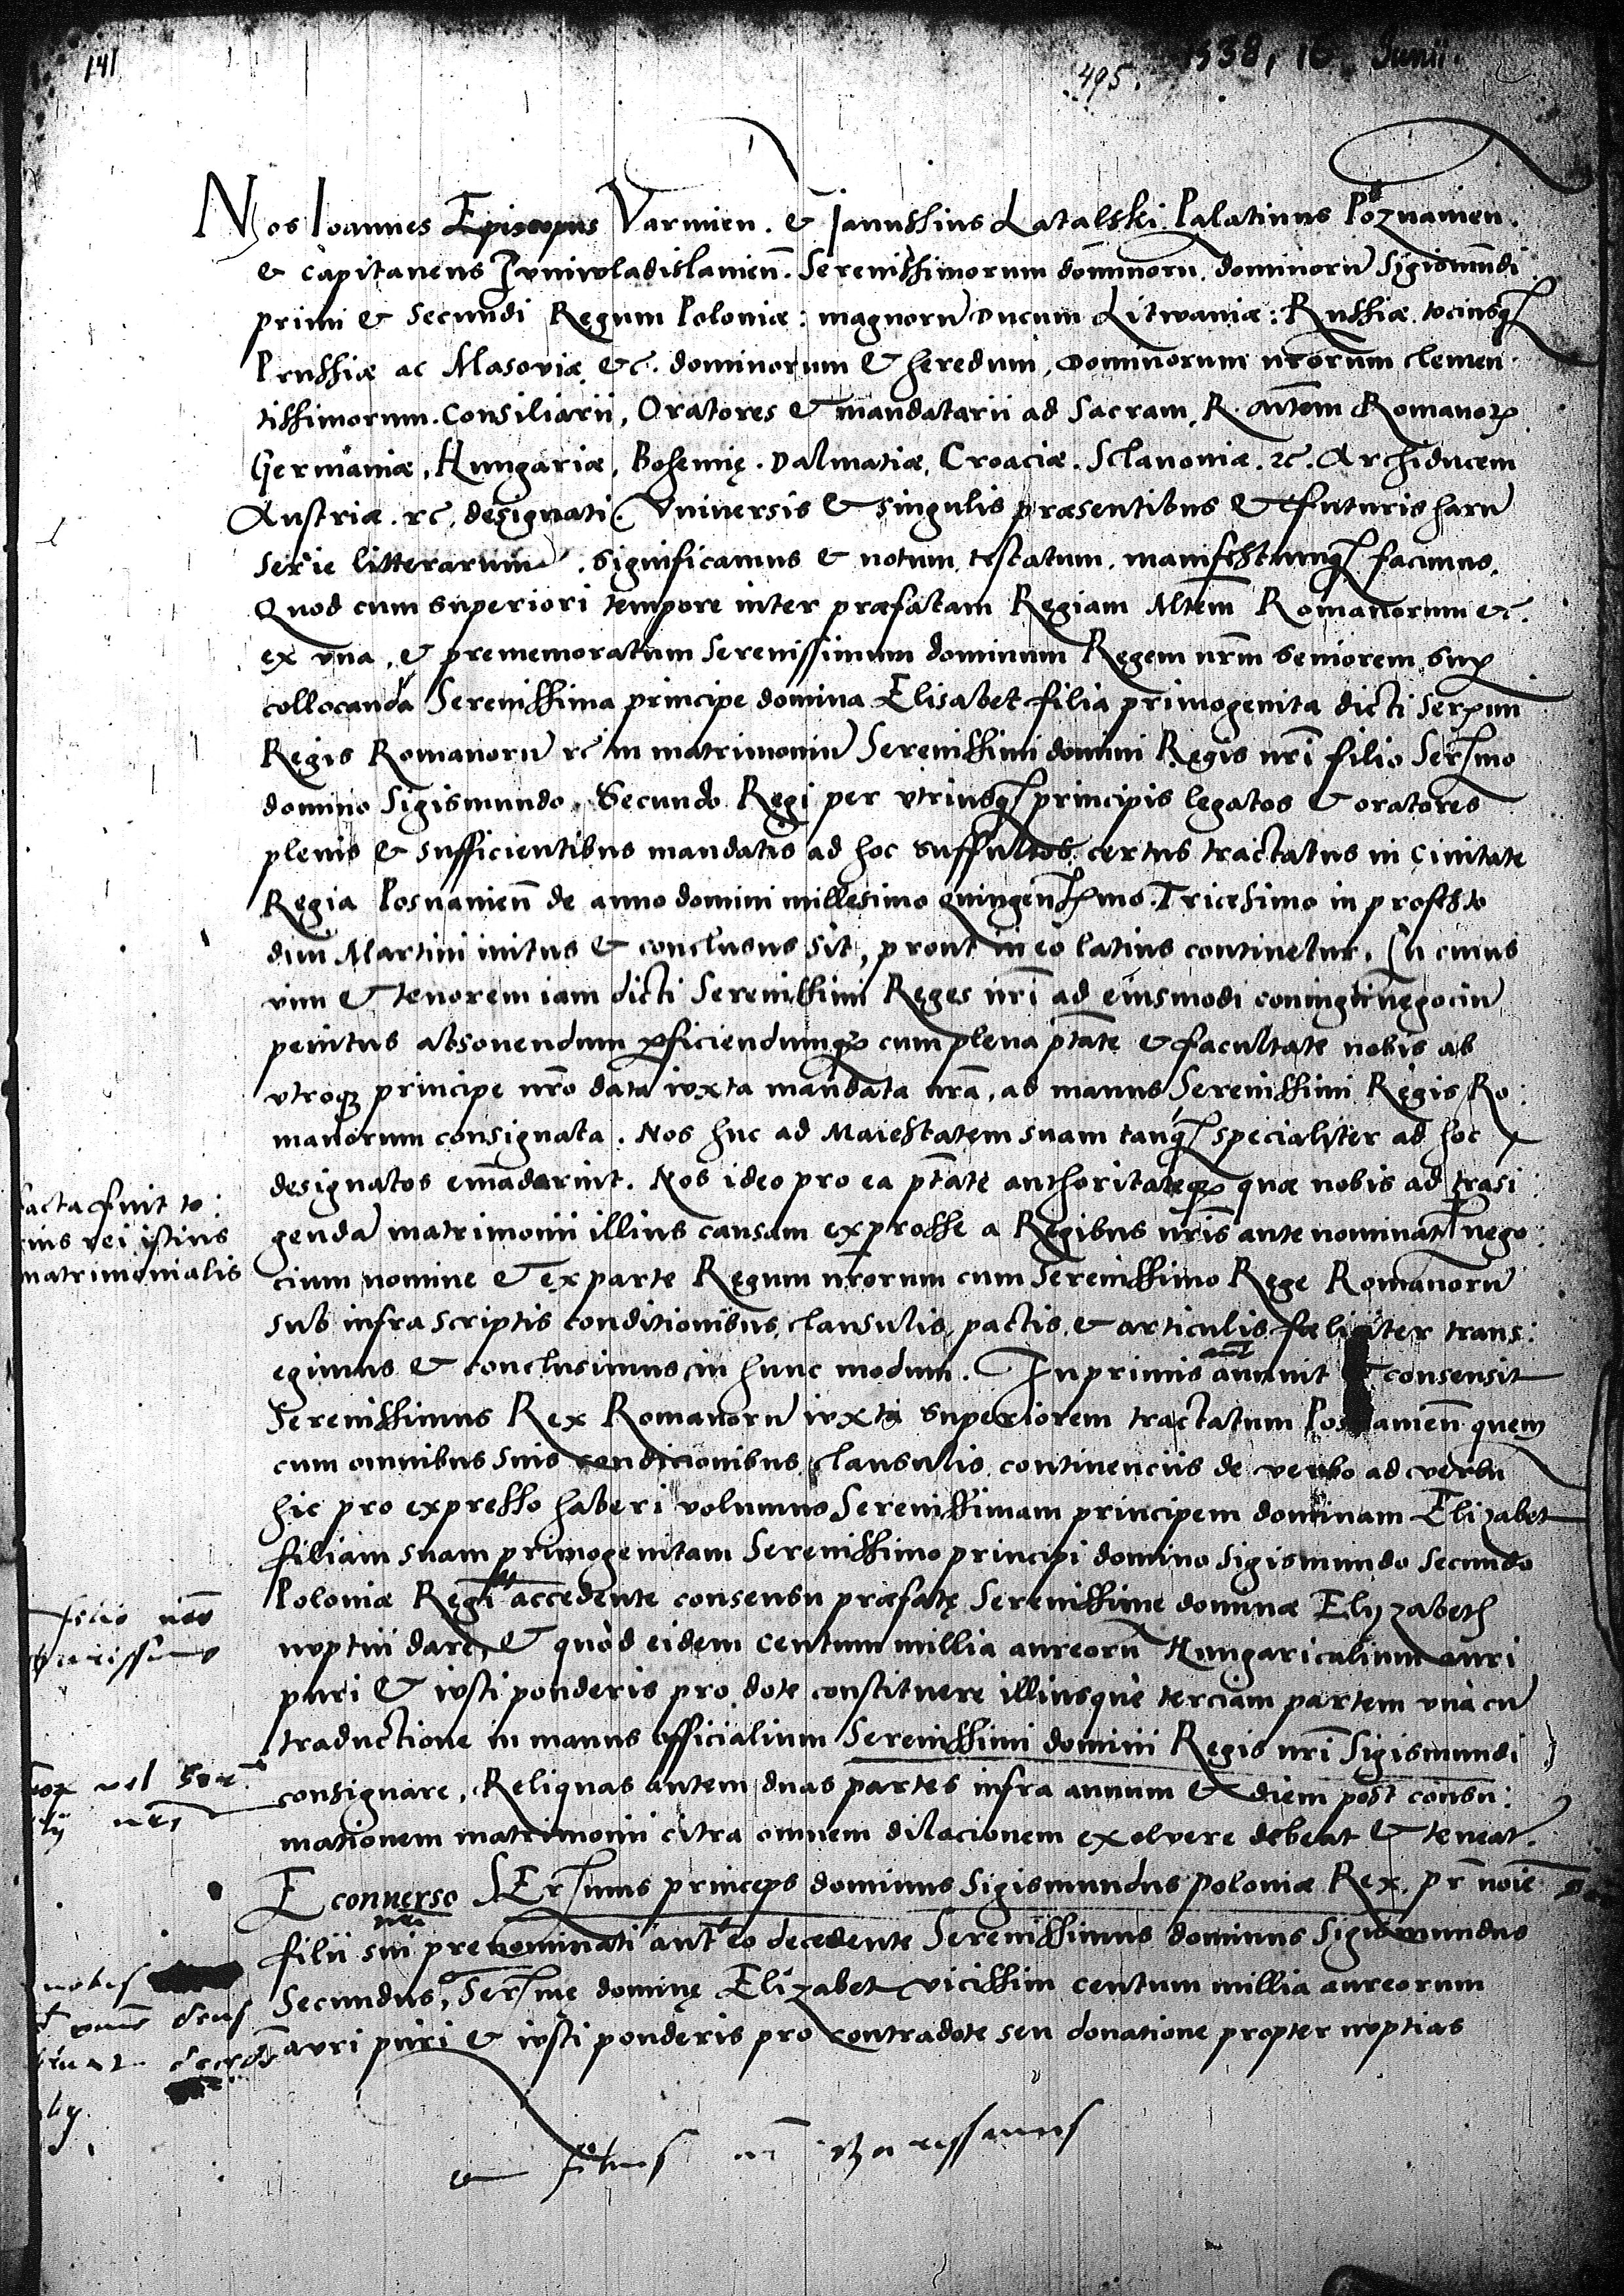 141
495.
1538, 16 Junii.
Nos Ioannes Episcopus Varmien. & Janusshius Latalski Palatinus Poznanien.
& capitaneus Juniwladislauien̄. Serenisshimorum domīnorū, dominorū Sigismūndi
primi & Secundi Regum Poloniæ: magnorū Ducum Litwaniæ: Russhiæ tociusq₃
Prusshiæ ac Masoviæ &c. dominorum & heredum, Dominorum nr̄orum clemen
tisshimorum. Consiliarii, Oratores & mandatarii ad Sacram R. M̄tem Romanoꝝ
Germaniæ, Hungariæ, Bohemię. Dalmatiæ, Croaciæ. Sclavoniæ. ꝛc. Archiducem
Austriæ. ꝛc. designati. Vniversis & singulis præsentibus & futuris harū
serie litterarum. significamus & notum testatum. manifestumq₃ facimus.
Quod cum superiori tempore inter præfatam Regiam Mtēm Romanorum &c.
ex vna, & prememoratum Serenissimum dominum Regem nr̄m Seniorem sup
collocanda Serenisshima principe domina Elisabet filia primogenita dicti Ser̄mi
Regis Romanorū ꝛc in matrimoniū Serenisshimi domini Regis nr̄i filio Ser̄mo
domino Sigismundo Secundo Regi per vtriusq₃ principis legatos & oratores
plenis & sufficientibus mandatis ad hoc suffultos certus tractatus in Civitate
Regia Posnanien̄ de anno domini millesimo quingent̄mo. Tricesimo in profesto
diui Martini initus & conclusus sit, prout in eo latius continetur. In cuius
vim & tenorem iam dicti Serenisshimi Reges nr̄i ad eiusmodi coniugii negociū
penitus absoluendum ꝑficiendumq₃ cum plena ptāte & facultate nobis ab
vtroq₃ principe nr̄o data iuxta mandata nr̄a, ad manus Serenisshimi Regis Ro:
manorum consignata. Nos huc ad Maiestatem suam tanq₃ specialiter ad hoc
designatos emādarint. Nos ideo pro ea ptāte authoritateq₃ quæ nobis ad trāsi:
gendā matrimonii illius causam exprosse a Regibus nr̄is ante nominat nego:
cium nomine & ex parte Regum nr̄orum cum Serenisshimo Rege Romanorū
sub infra scriptis conditionibus, clausulis, pactis, & articulis fœliciter trans:
egimus & conclusimus in hunc modum. Inprimis annuit & consensit
Serenisshimus Rex Romanorū iuxta superiorem tractatum Posnanien̄ quem
cum omnibus suis condicionibus clausulis continenciis de verbo ad verbū
hic pro expresso haberi volumus Serenisshimam principem dominam Elizabet
filiam suam primogenitam Serenisshimo principi domino Sigismundo Secundo
Poloniæ Regi accedente consensu præfatę Serenisshime dominæ Elyzabeth
nuptui dare, & quòd eidem centum millia aureorū Hungaricalium auri
puri & iusti ponderis pro dote constituere illiusque terciam partem vna cū
traductione in manus officialium Serenisshimi domini Regis nr̄i Sigismundi
consignare, Reliquas autem duas partes infra annum & diem post consu:
mationem matrimonii citra omnem dilacionem exolvere debeat & teneat.
E converso SEr̄mus princeps dominus Sigismundus Poloniæ Rex, pr̄ noīe
filii sui prenominati aut eo decedente Serenisshimus dominus Sigismundus
Secundus, Ser̄mę dominę Elizabet vicisshim centum millia aureorum
auri puri & iusti ponderis pro contradote seu donatione propter nuptias
facta fuit to:
cius rei istius
matrimonialis
filio
carissimo
vel
nobis
filius
carissimus